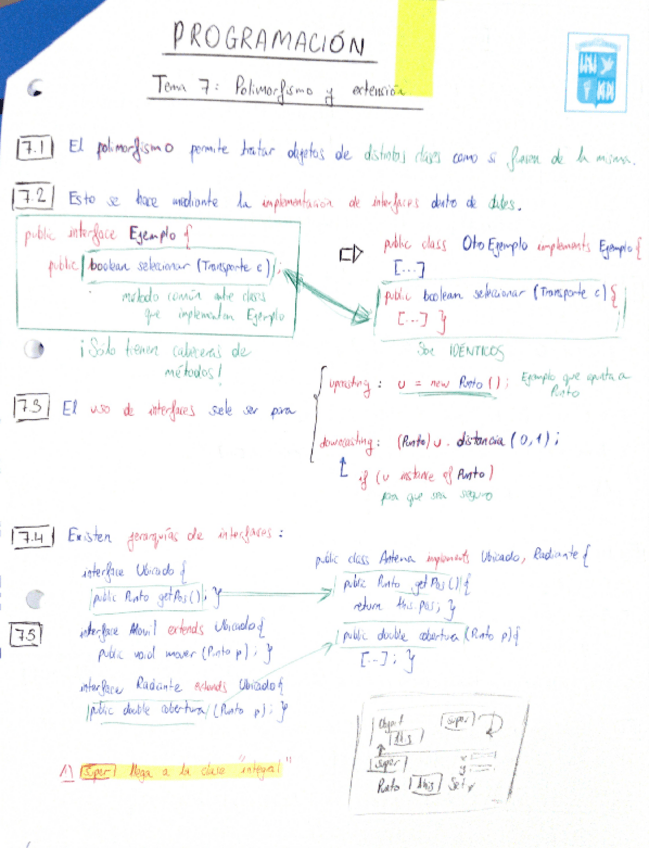 PROGRAMACIÓN
Tema 7: Polimorfismo y extensión
7.1 El polimorfismo permite tratar objetos de distintas clases como si fueran de la misma.
7.2 Esto se hace mediante la implementación de interfaces dentro de
public interface Ejemplo {
public boolean selecionar (Transporte c);
método común entre clases
que implementan Ejemplo
¡Sólo tienen cabeceras de
métodos!
public class OtroEjemplo implements Ejemplo {
[...]
public boolean selecionar (Transporte c) {
[...] }
Son IDÉNTICOS
7.3 El uso de interfaces sele ser para
upcasting: u = new Punto(); Ejemplo que apunta a
Punto
downcasting: (Punto) u. distancia (0,1);
if (u instance of Punto)
para que sea seguro
7.4 Existen jerarquías de interfaces:
interface Ubicado {
public Punto getPos(); }
7.5 interface Movil extends Ubicado {
public void mover (Punto p); }
interface Radiante extends Ubicado {
public double cobertura (Punto p); }
public class Antena implements Ubicado, Radiante {
public Punto getPos() {
return this.pos; }
public double cobertura (Punto p) {
[...]; }
super llega a la clase "integral"
Object super
this
super x
y
Punto this Set